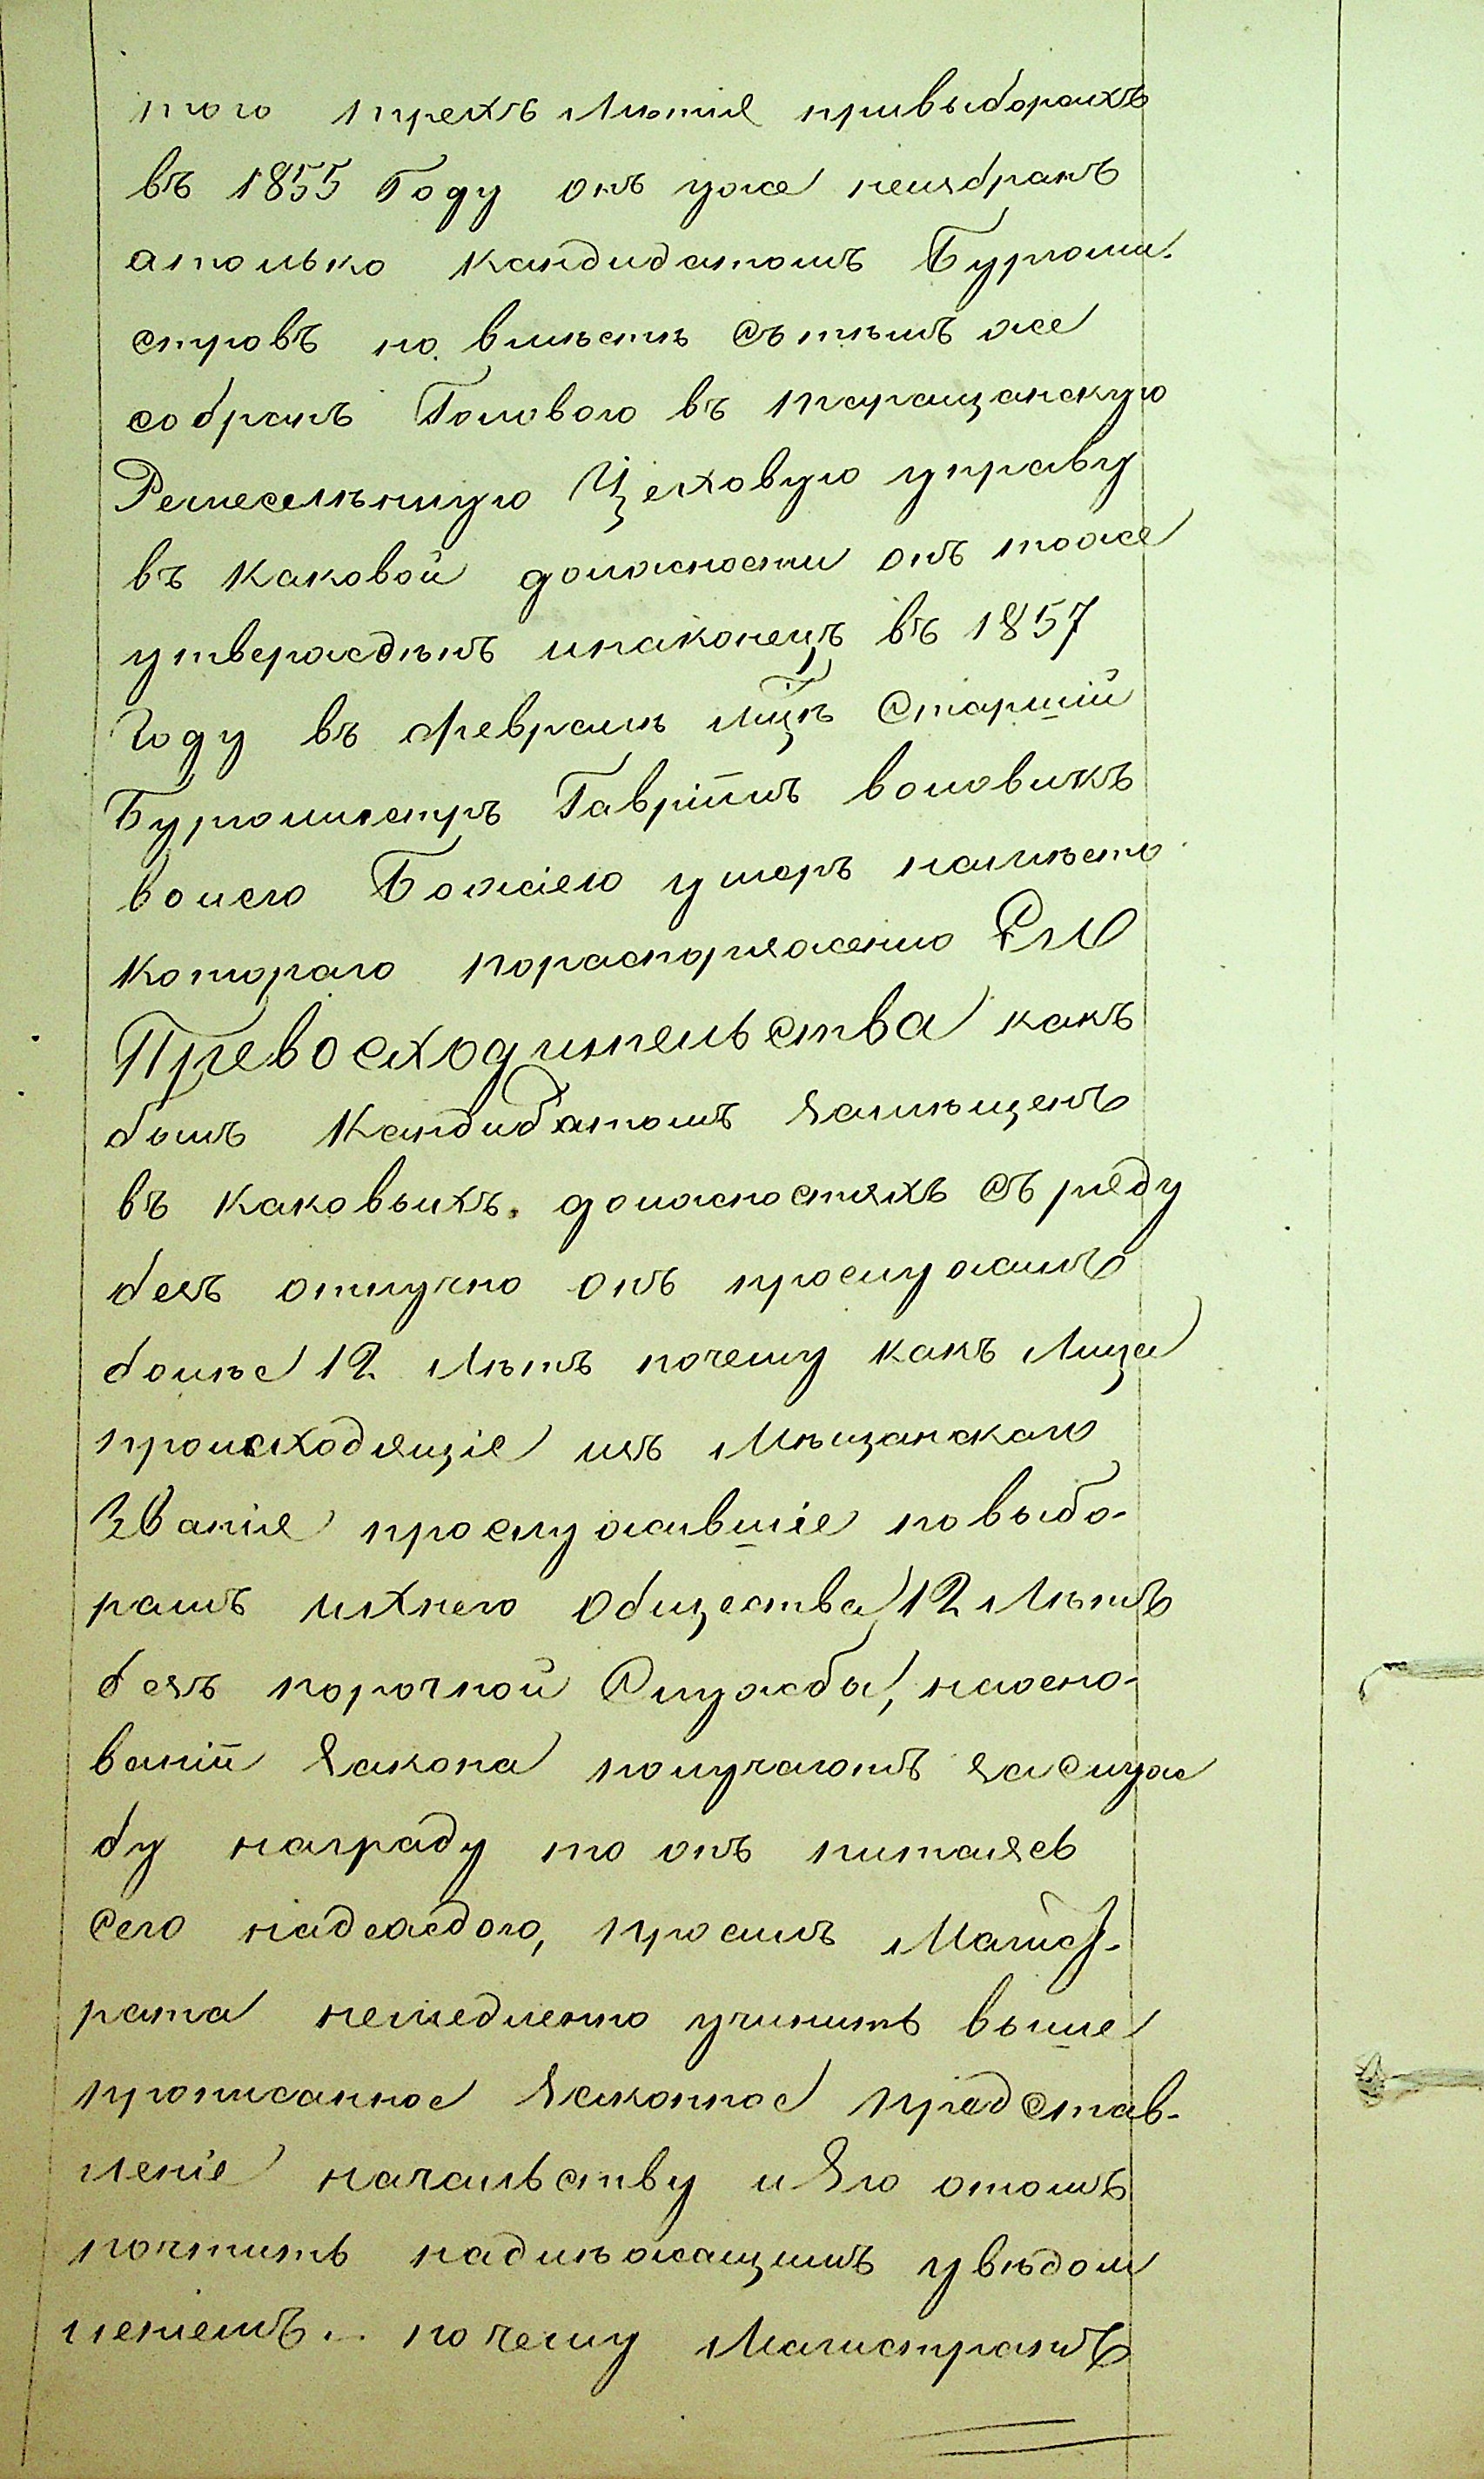 того трехъ лѣтія привыборахъ
въ 1855 Году онъ уже неизбранъ
атолько кандидатомъ Бургоми-
стровъ но вмѣстѣ Съ тѣмъ же
собранъ Головою въ таращанскую
Ремесельную Цеховую управу
въ каковой должности онъ тоже
утвержденъ инаконецъ въ 1857
Году въ февралѣ мцѣ Старшій
Бургомистръ Гавріилъ воловикъ
волею Божіею умеръ намѣсто
котораго пораспоряженію Его
Превосходительства какъ
былъ Кандидатомъ замѣщенъ
въ каковыхъ должностяхъ Съ ряду
безъ отлучно онъ прослужилъ
болѣе 12 лѣтъ почему какъ Лица
происходящіе изъ Мѣщанскаго
Званія прослужившіе по выбо-
рамъ ихнего Общества 12 лѣтъ
безъ порочной Службы, наосно-
ваніи закона получаютъ заСлуж
бу награду то онъ питаясь
Сею надеждою, просилъ Магист-
рата немедленно учинить выше
прописанное законное представ-
леніе начальству иЭго отомъ
почтить надлѣжащимъ увѣдом
леніемъ. — почему Магистратъ